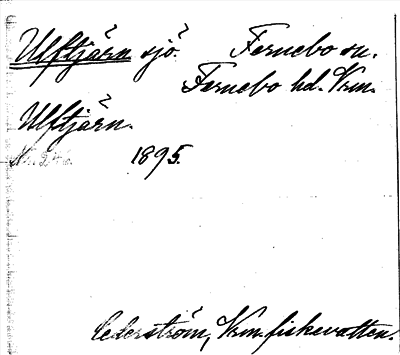 Ulftjärn sjö. Fernebo sn.
Fernebo hd. Vrm.
Ulftjärn.
1895.
Cederström, Vrm. fiskevatten.